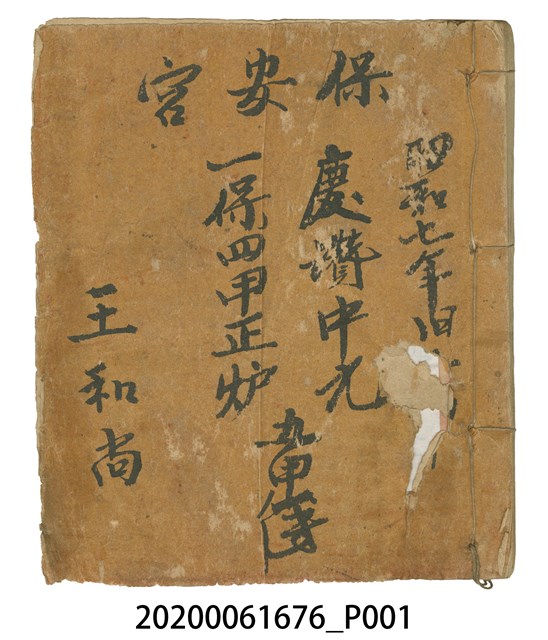 保安宮
昭和七年旧
慶讚中元
九甲簿
一保四甲正炉
王和尚
20200061676_P001